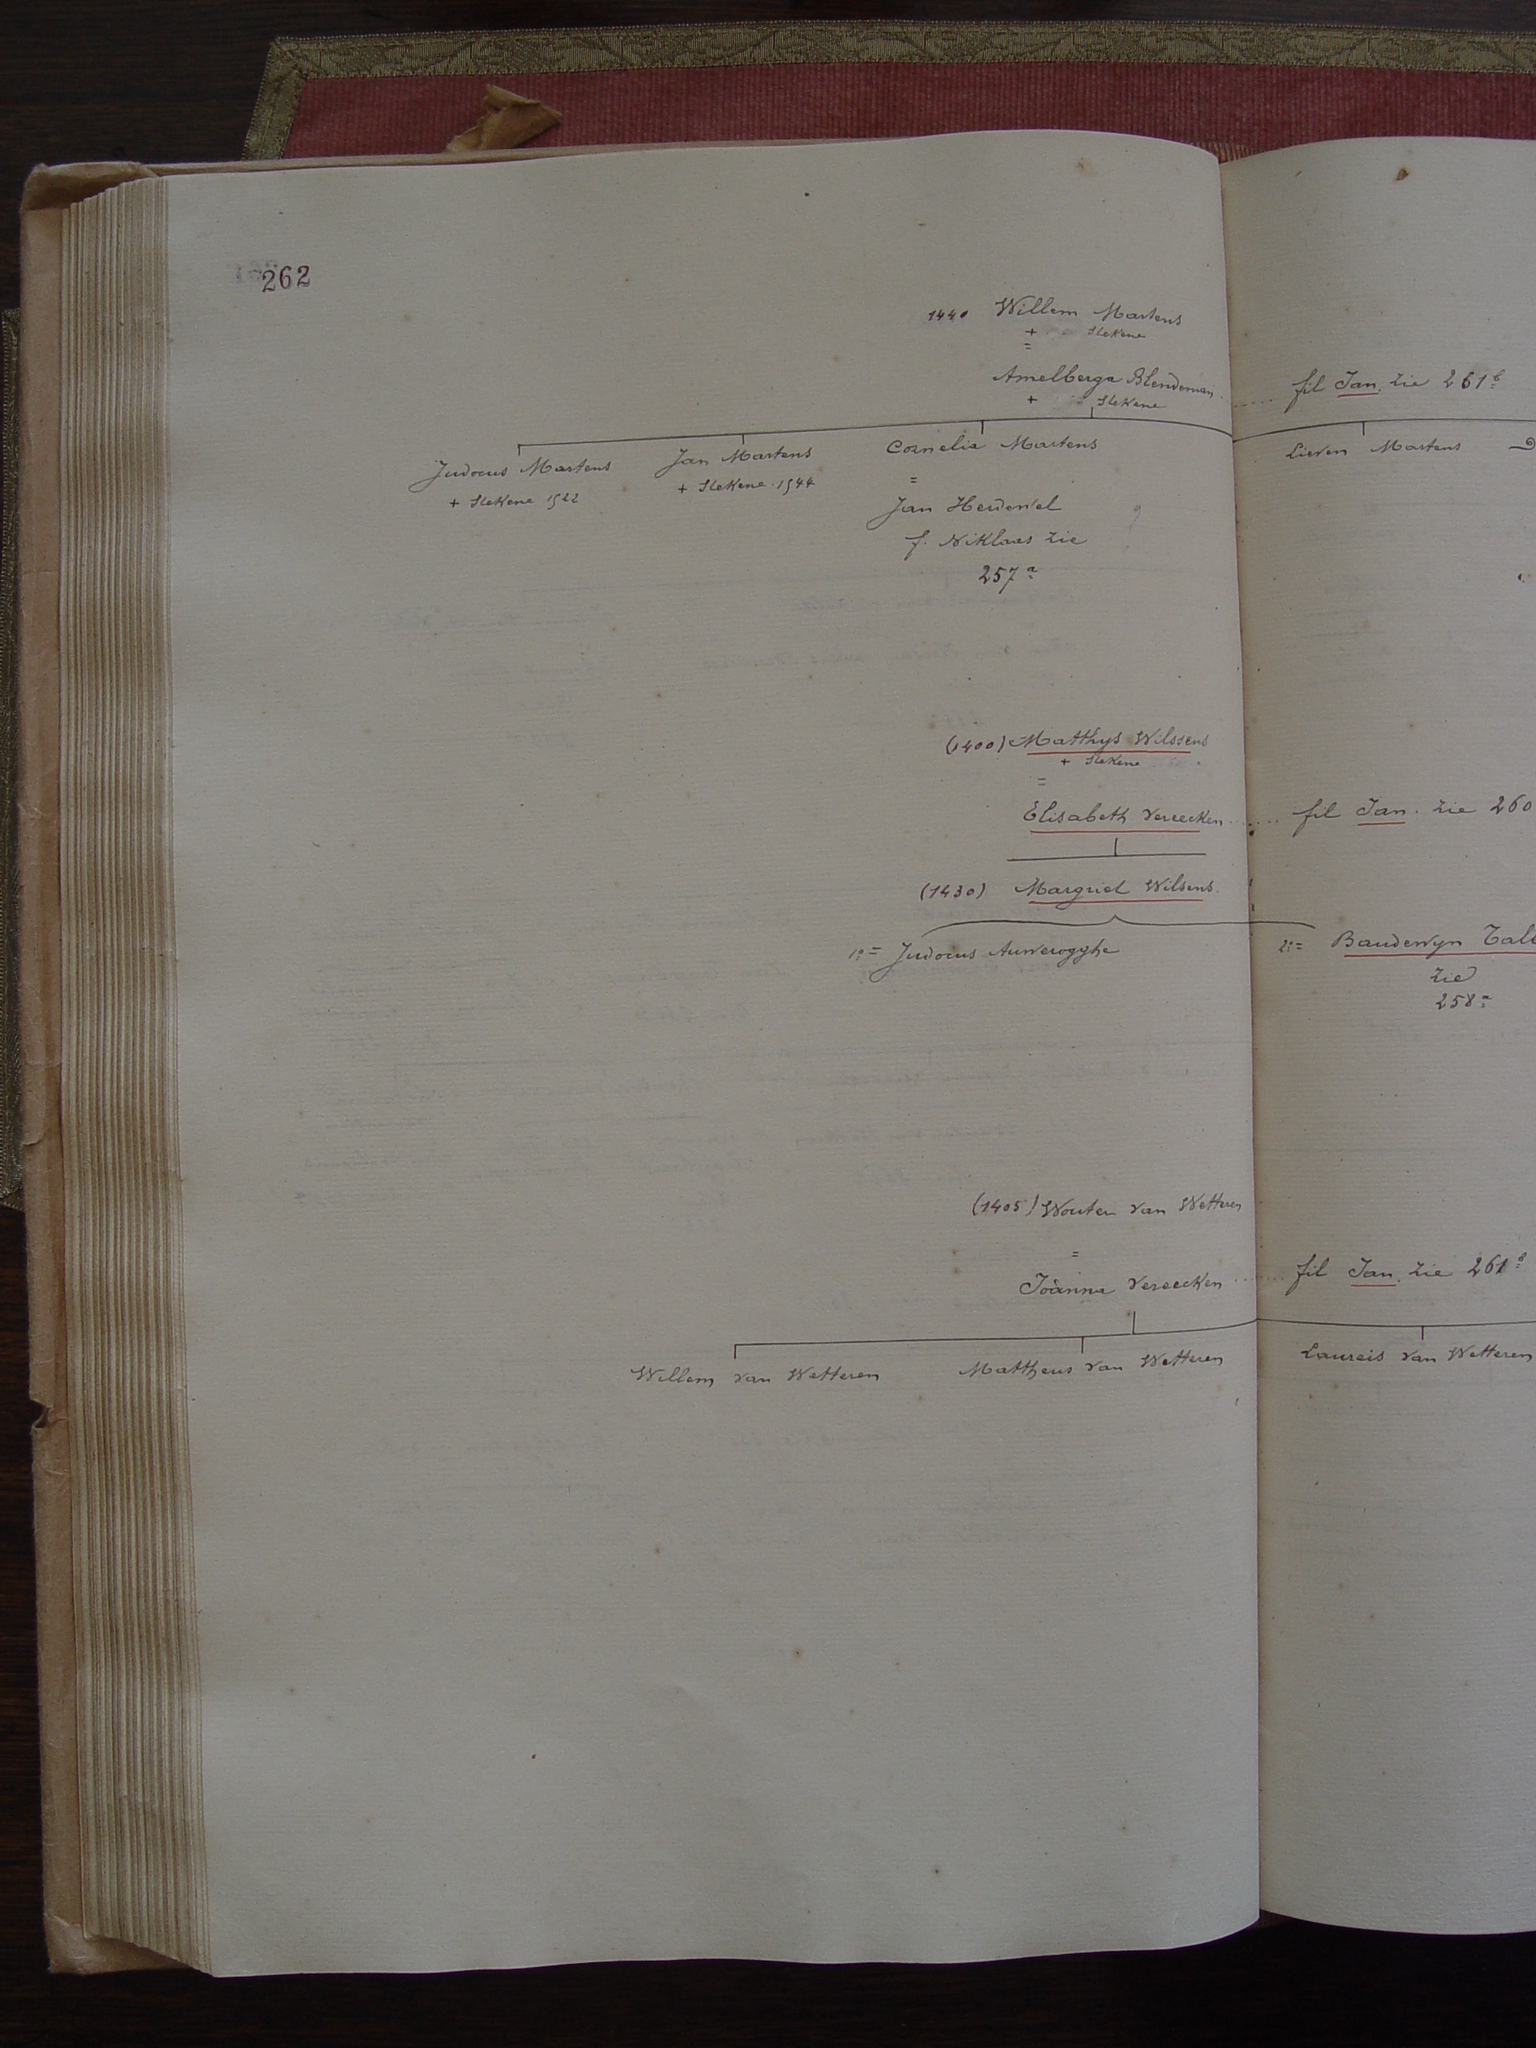 262
1440 Willem Martens
+ Stekene
=
Amelberga Blendeman ...... fil Jan. zie 261 b
+ Stekene
Judocus Martens
+ Stekene 1522
Jan Martens
+ Stekene 1544
Cornelia Martens
=
Jan
f. Niklaes zie
257 a
Lieven Martens
(1400) Matthys Wilssens
+ Stekene
=
Elisabeth Vereecken ...... fil Jan. zie 260
(1430) Margriet Wilsens.
1º = Judocus Auwerogghe
2º = Baudewyn
zie
258 a
(1405) Wouter van Wetteren
=
Joanna Vereecken ...... fil Jan. zie 261
Willem van Wetteren
Mattheus van Wetteren
Laureis van Wetteren